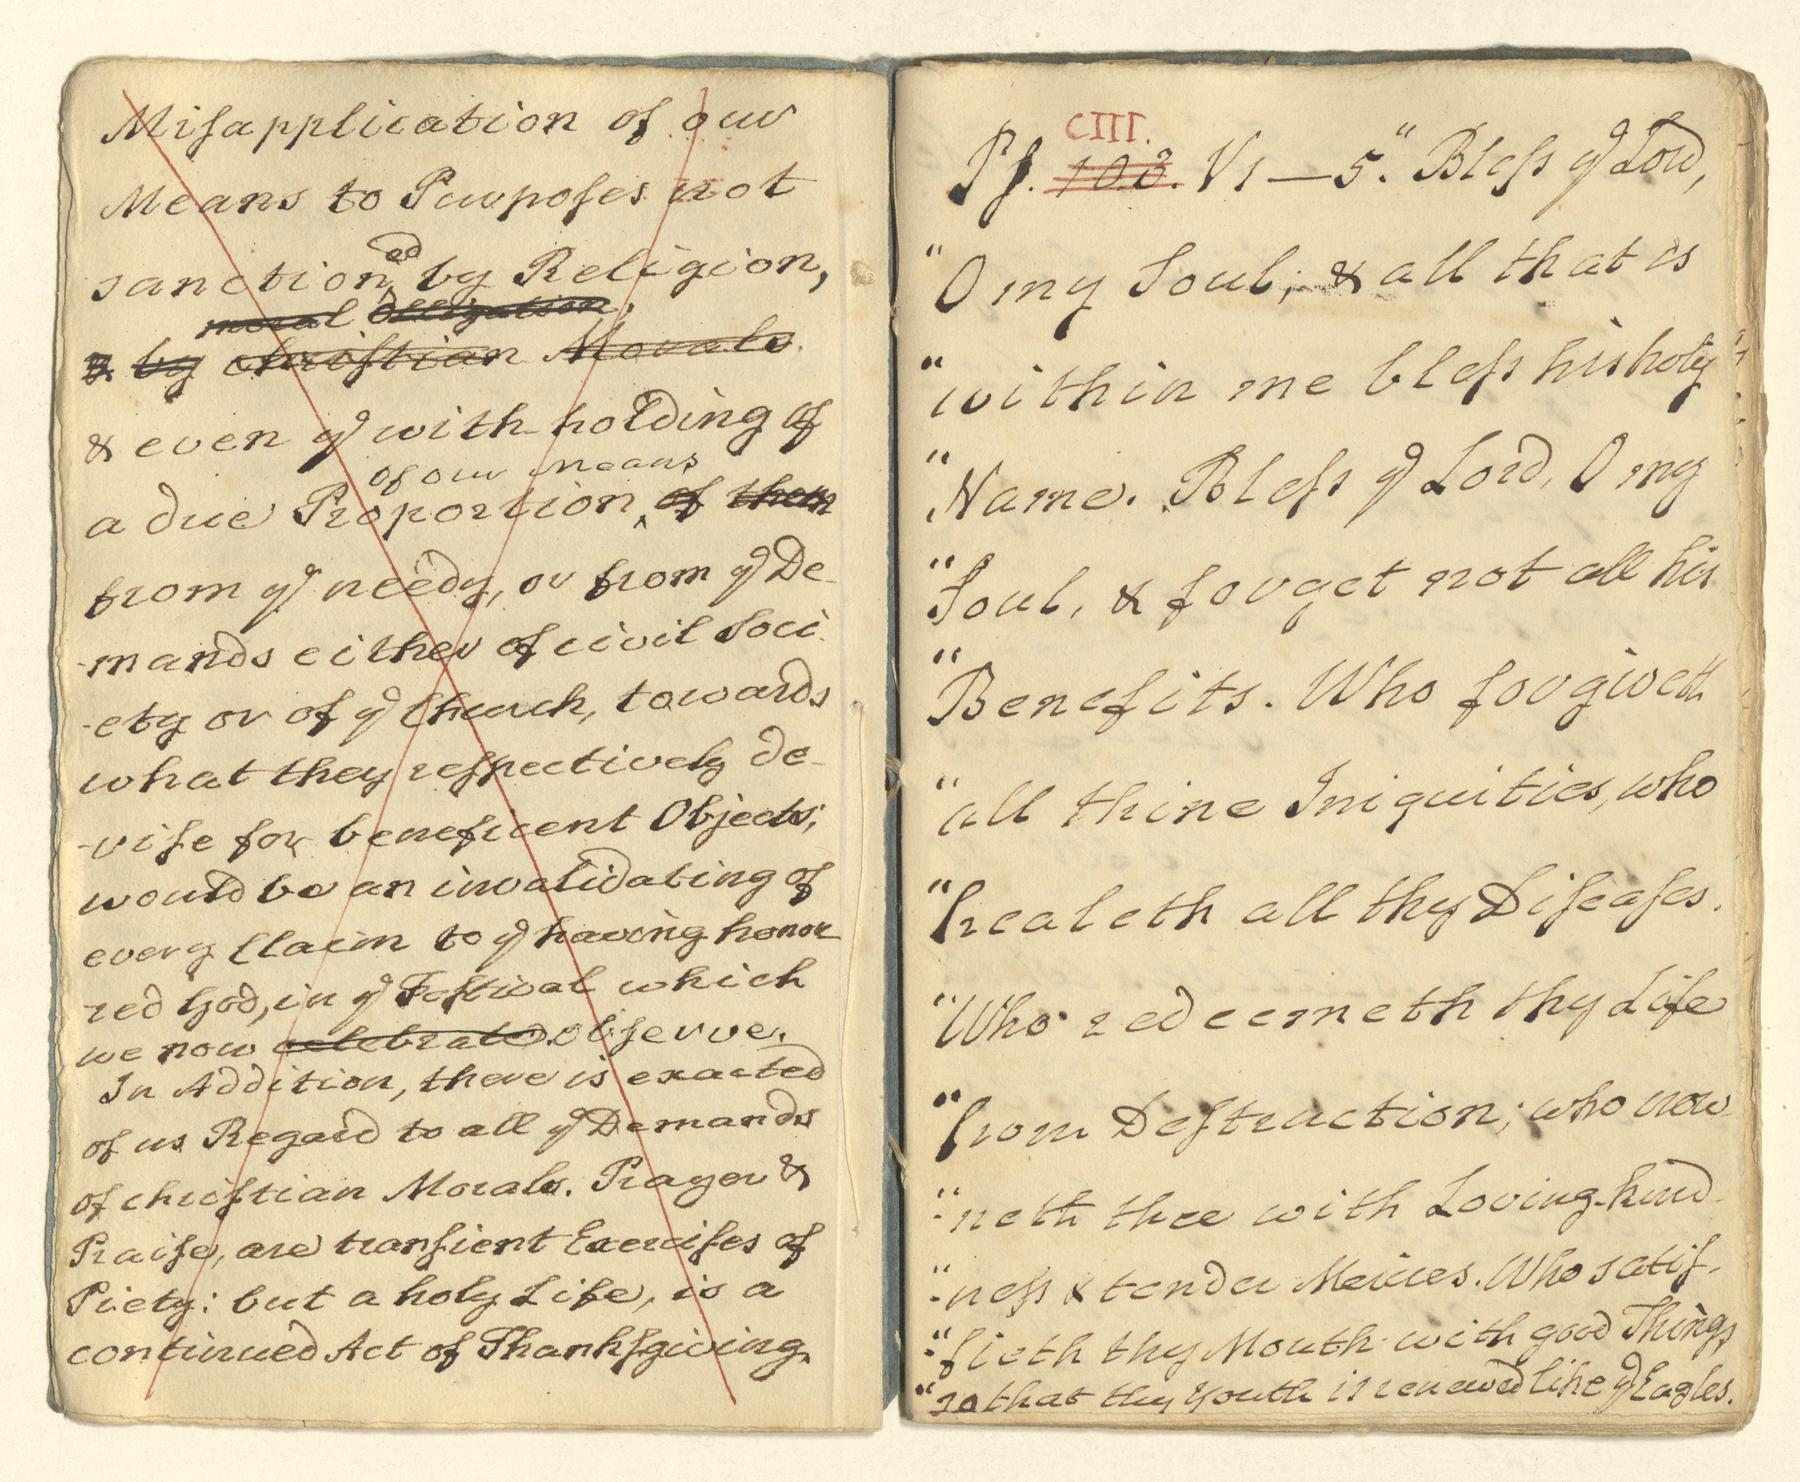 Misapplication of our
Means to Purposes not
sanctioned by Religion,
moral Obligation,
& by christian Morals.
& even ye with-holding of
of our means
a due Proportion of them
from ye needy, or from ye De-
-mands either of civil Soci-
-ety or of ye Church, towards
what they respectively de-
-vise for beneficent Objects;
would be an invalidating of
every Claim to ye having hono-
red God, in ye Festival which
we now celebrate. observe.
In Addition, there is exacted
of us Regard to all ye Demands
of christian Morals. Prayer &
Praise, are transient Exercises of
Piety: but a holy Life, is a
continued Act of Thanksgiving.
CIII.
Ps. 103. V1—5. "Bless ye Lord,
"O my Soul; & all that is
"within me bless his holy
"Name. Bless ye Lord, O my
"Soul, & forget not all his
"Benefits. Who forgiveth
"all thine Iniquities, who
"healeth all thy Diseases.
"Who redeemeth thy Life
"from Destruction; who crow
"-neth thee with Loving-kind-
"-ness & tender Mercies. Who satis-
"-fieth thy Mouth with good Things
"so that thy Youth is renewed like ye Eagles.